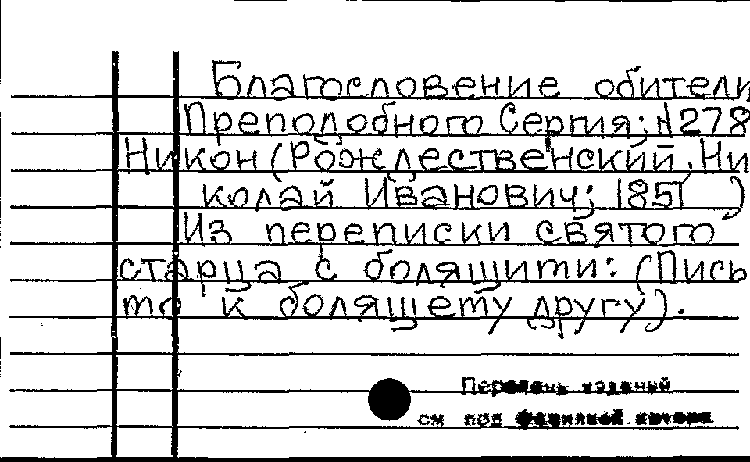 Благословение обители
Преподобного Сергия; №278
Никон (Рождественский, Ни
колай Иванович; 1851 )
Из переписки святого
старца с болящими: (Пись
мо к болящему другу).
Перечень изданий
см под фамилией автора